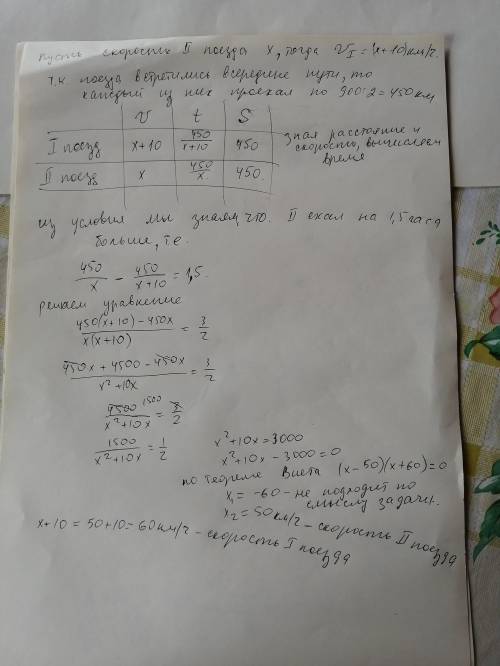 Пусть скорость II поезда x, тогда V_I = (x+10) км/ч.
т.к поезда встретились в середине пути, то
каждый из них проехал по 900:2=450км
V t S
I поезд x+10 450/(x+10) 450
II поезд x 450/x 450.
зная расстояние и
скорость, вычисляем
время
из условия мы знаем, что. II ехал на 1,5 часа
больше, т.е.
450/x - 450/(x+10) = 1,5.
решаем уравнение
(450(x+10) - 450x)/(x(x+10)) = 3/2
(450x + 4500 - 450x)/(x²+10x) = 3/2
4500 1500/(x²+10x) = 3/2
1500/(x²+10x) = 1/2
x²+10x = 3000
x²+10x - 3000 = 0
по теореме Виета (x-50)(x+60)=0
x₁ = -60 - не подходит по
смыслу задачи.
x₂ = 50 км/ч - скорость II поезда
x+10 = 50+10 = 60 км/ч - скорость I поезда